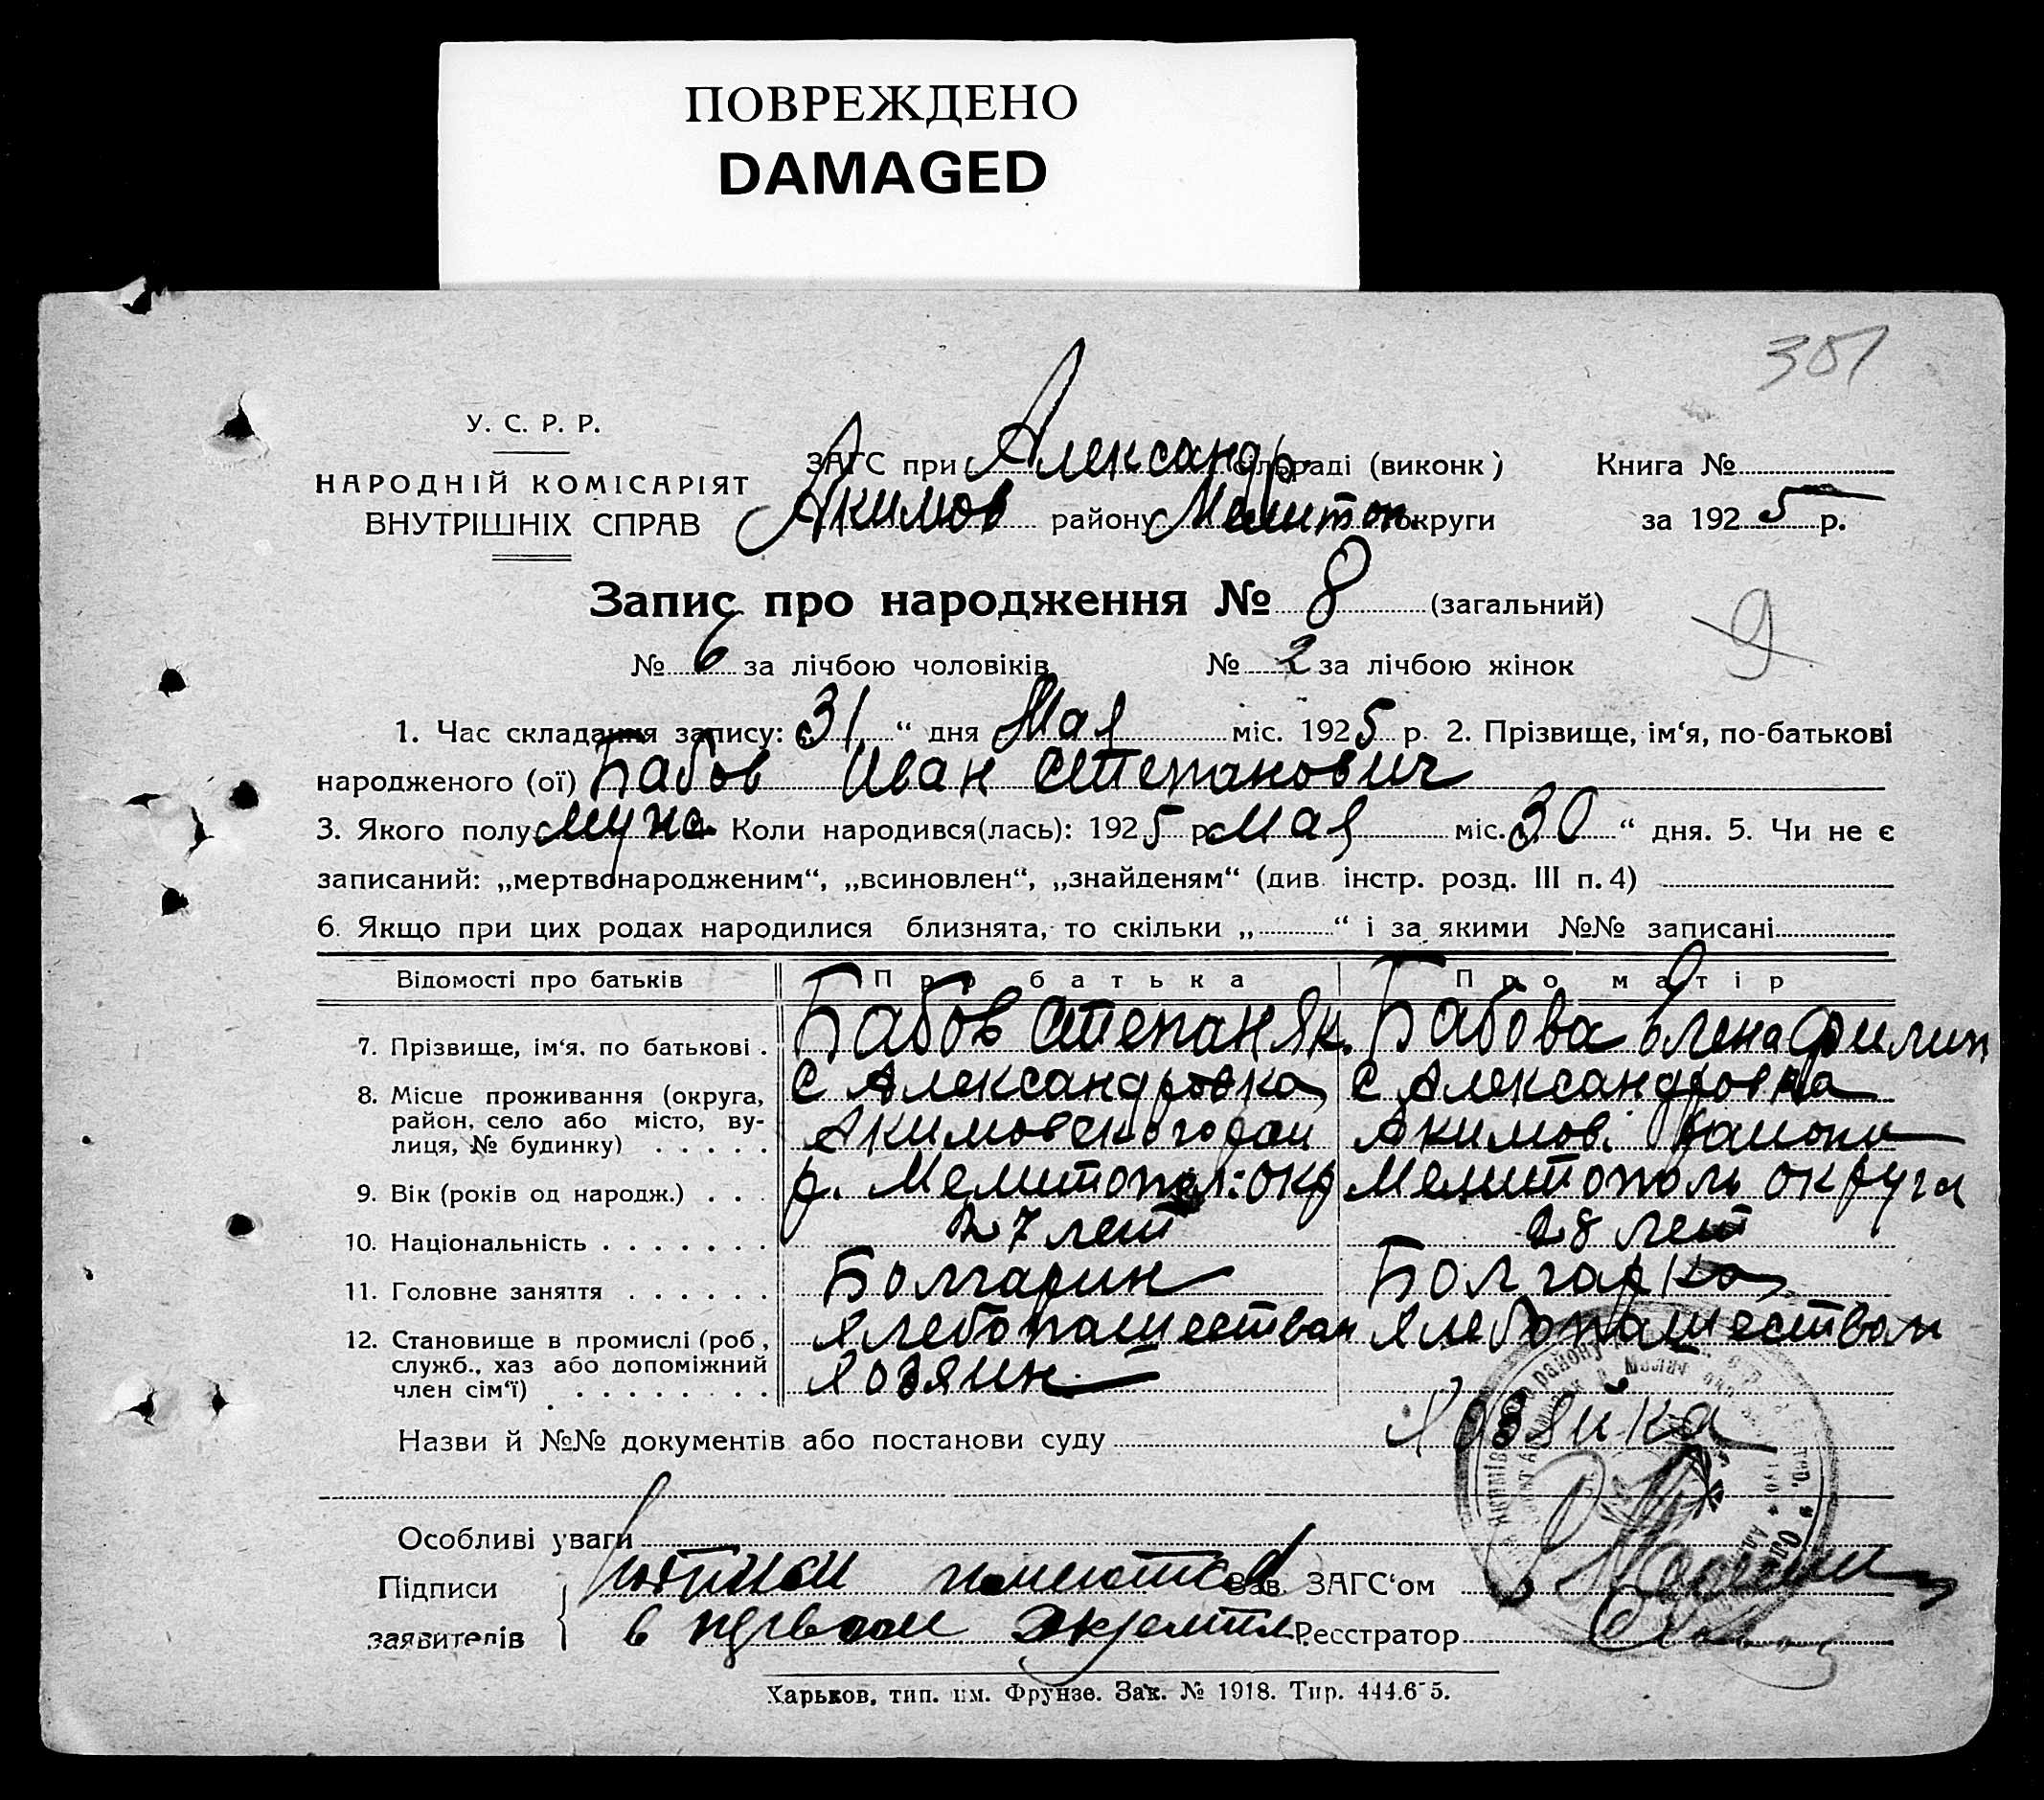 ПОВРЕЖДЕНО
DAMAGED
301
У. С. Р. Р.
НАРОДНІЙ КОМІСАРІЯТ
ВНУТРІШНІХ СПРАВ
ЗАГС при Александр. сільраді (виконк)
Акимов району Мелитоп. округи
Книга №
за 1925 р.
Запис про народження № 8 (загальний)
9
№ 6 за лічбою чоловіків № 2 за лічбою жінок
1. Час складання запису: 31 “ дня Мая міс. 1925 р. 2. Прізвище, ім‘я, по-батькові
народженого (ої) Бабов Иван Степанович
3. Якого полу муж. Коли народився(лась): 1925 р. Мая міс. 30 “ дня. 5. Чи не є
записаний: „мертвонародженим“, „всиновлен“, „знайденям“ (див. інстр. розд. III п. 4)
6. Якщо при цих родах народилися близнята, то скільки „ “ і за якими №№ записані
Відомості про батьків Про батька Про матір
7. Прізвище, ім‘я, по батькові . Бабов Степан Як. Бабова Елена Филип
8. Місце проживання (округа, с Александровка с Александровка
район, село або місто, ву- Акимовского рай Акимов. району
лиця, № будинку) . . . . .
9. Вік (років од народж.) . . . р. Мелитопол: окр Мелитополь округа
27 лет 28 лет
10. Національність . . . . . . .
11. Головне заняття . . . . . . Болгарин Болгарка
12. Становище в промислі (роб., Хлебопашеством Хлебопашеством
служб., хаз або допоміжний Хозяин
член сім‘ї) . . . . . . . .
Хозяйка
Назви й №№ документів або постанови суду
Особливі уваги
Підписи
заявителів
имеются Зав. ЗАГС‘ом
в первом экземпл. Реєстратор
Харьков, тип. им. Фрунзе. Зак. № 1918. Тир. 444.6-5.